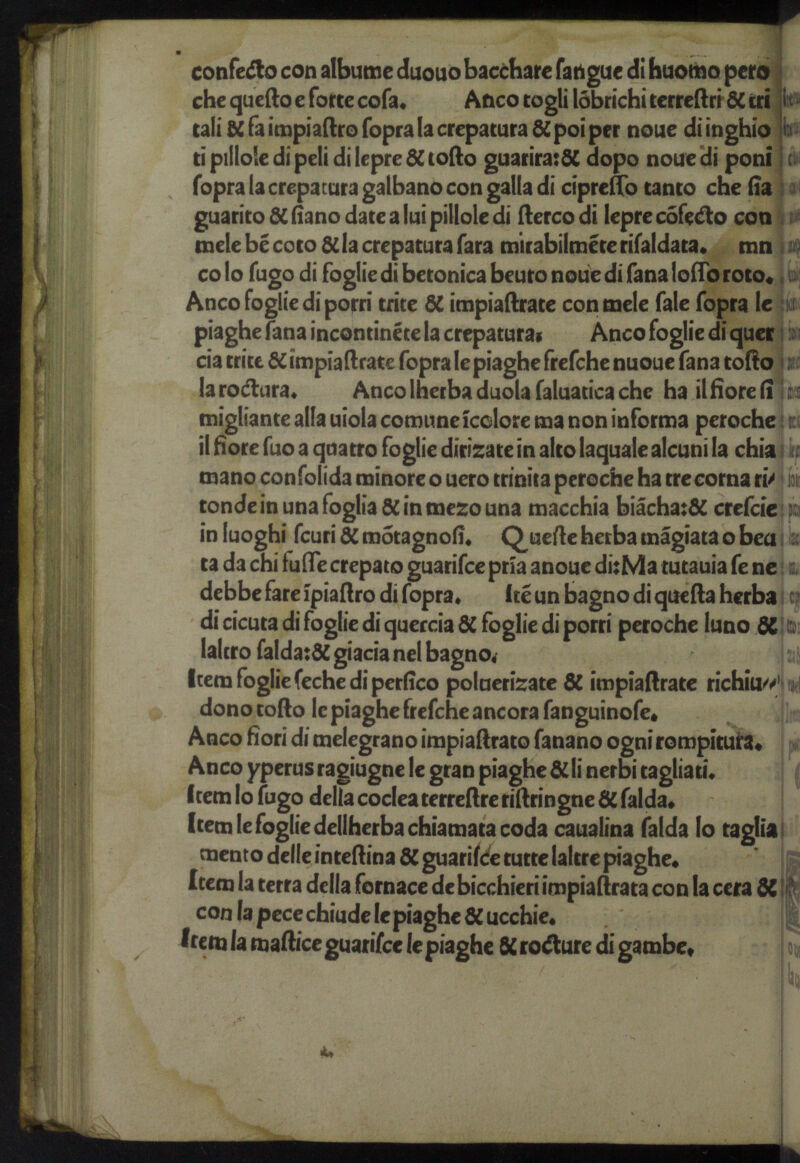 confecto con albume duouo bacchare ſangue di huomo pero
che queſto e forte coſa. Anco togli lōbrichi terreſtri & tri
tali & fa impiaſtro ſopra la crepatura & poi per noue di inghio
ti pillole di peli di lepre & toſto guarira: & dopo noue di poni
ſopra la crepatura galbano con galla di cipreſſo tanto che ſia
guarito & ſiano date a lui pillole di ſterco di lepre cōfecto con
mele bē coto & la crepatura ſara mirabilmēte riſaldata. mn
co lo ſugo di foglie di betonica beuto noue di ſana loſſo roto.
Anco foglie di porri trite & impiaſtrate con mele ſale ſopra le
piaghe ſana incontinēte la crepatura: Anco foglie di quer
cia trite & impiaſtrate ſopra le piaghe freſche nuoue ſana toſto
la roctura. Anco lherba duola ſaluatica che ha il fiore ſi
migliante alla uiola comune ī colore ma non in forma peroche
il fiore ſuo a quatro foglie dirizate in alto laquale alcuni la chia
mano conſolida minore o uero trinita peroche ha tre corna ri/
tonde in una foglia & in mezo una macchia biācha: & creſcie
in luoghi ſcuri & mōtagnoſi. Queſte herba māgiata o beu
ta da chi fuſſe crepato guariſce pria a noue di: Ma tutauia ſe ne
debbe fare īpiaſtro di ſopra. Itē un bagno di queſta herba
di cicuta di foglie di quercia & foglie di porri peroche luno &
laltro ſalda: & giacia nel bagno.
Item foglie ſeche di perſico poluerizate & impiaſtrate richiu//
dono toſto le piaghe freſche ancora ſanguinoſe.
Anco fiori di melegrano impiaſtrato ſanano ogni rompitura.
Anco yperus ragiugne le gran piaghe & li nerbi tagliati.
Item lo ſugo della coclea terreſtre riſtringne & ſalda.
Item le foglie dellherba chiamata coda caualina ſalda lo taglia
mento delle inteſtina & guariſce tutte laltre piaghe.
Item la terra della fornace de bicchieri impiaſtrata con la cera &
con la pece chiude le piaghe & ucchie.
Item la maſtice guariſce le piaghe & rocture di gambe.